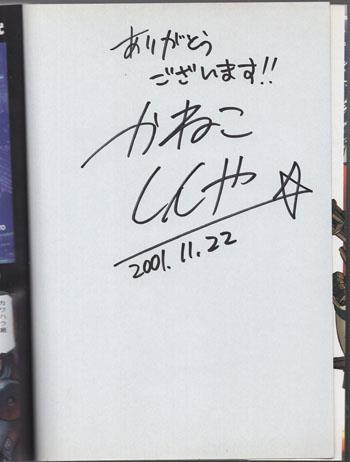 ありがとう
ございます!!
かねこ
しんや☆
2001.11.22